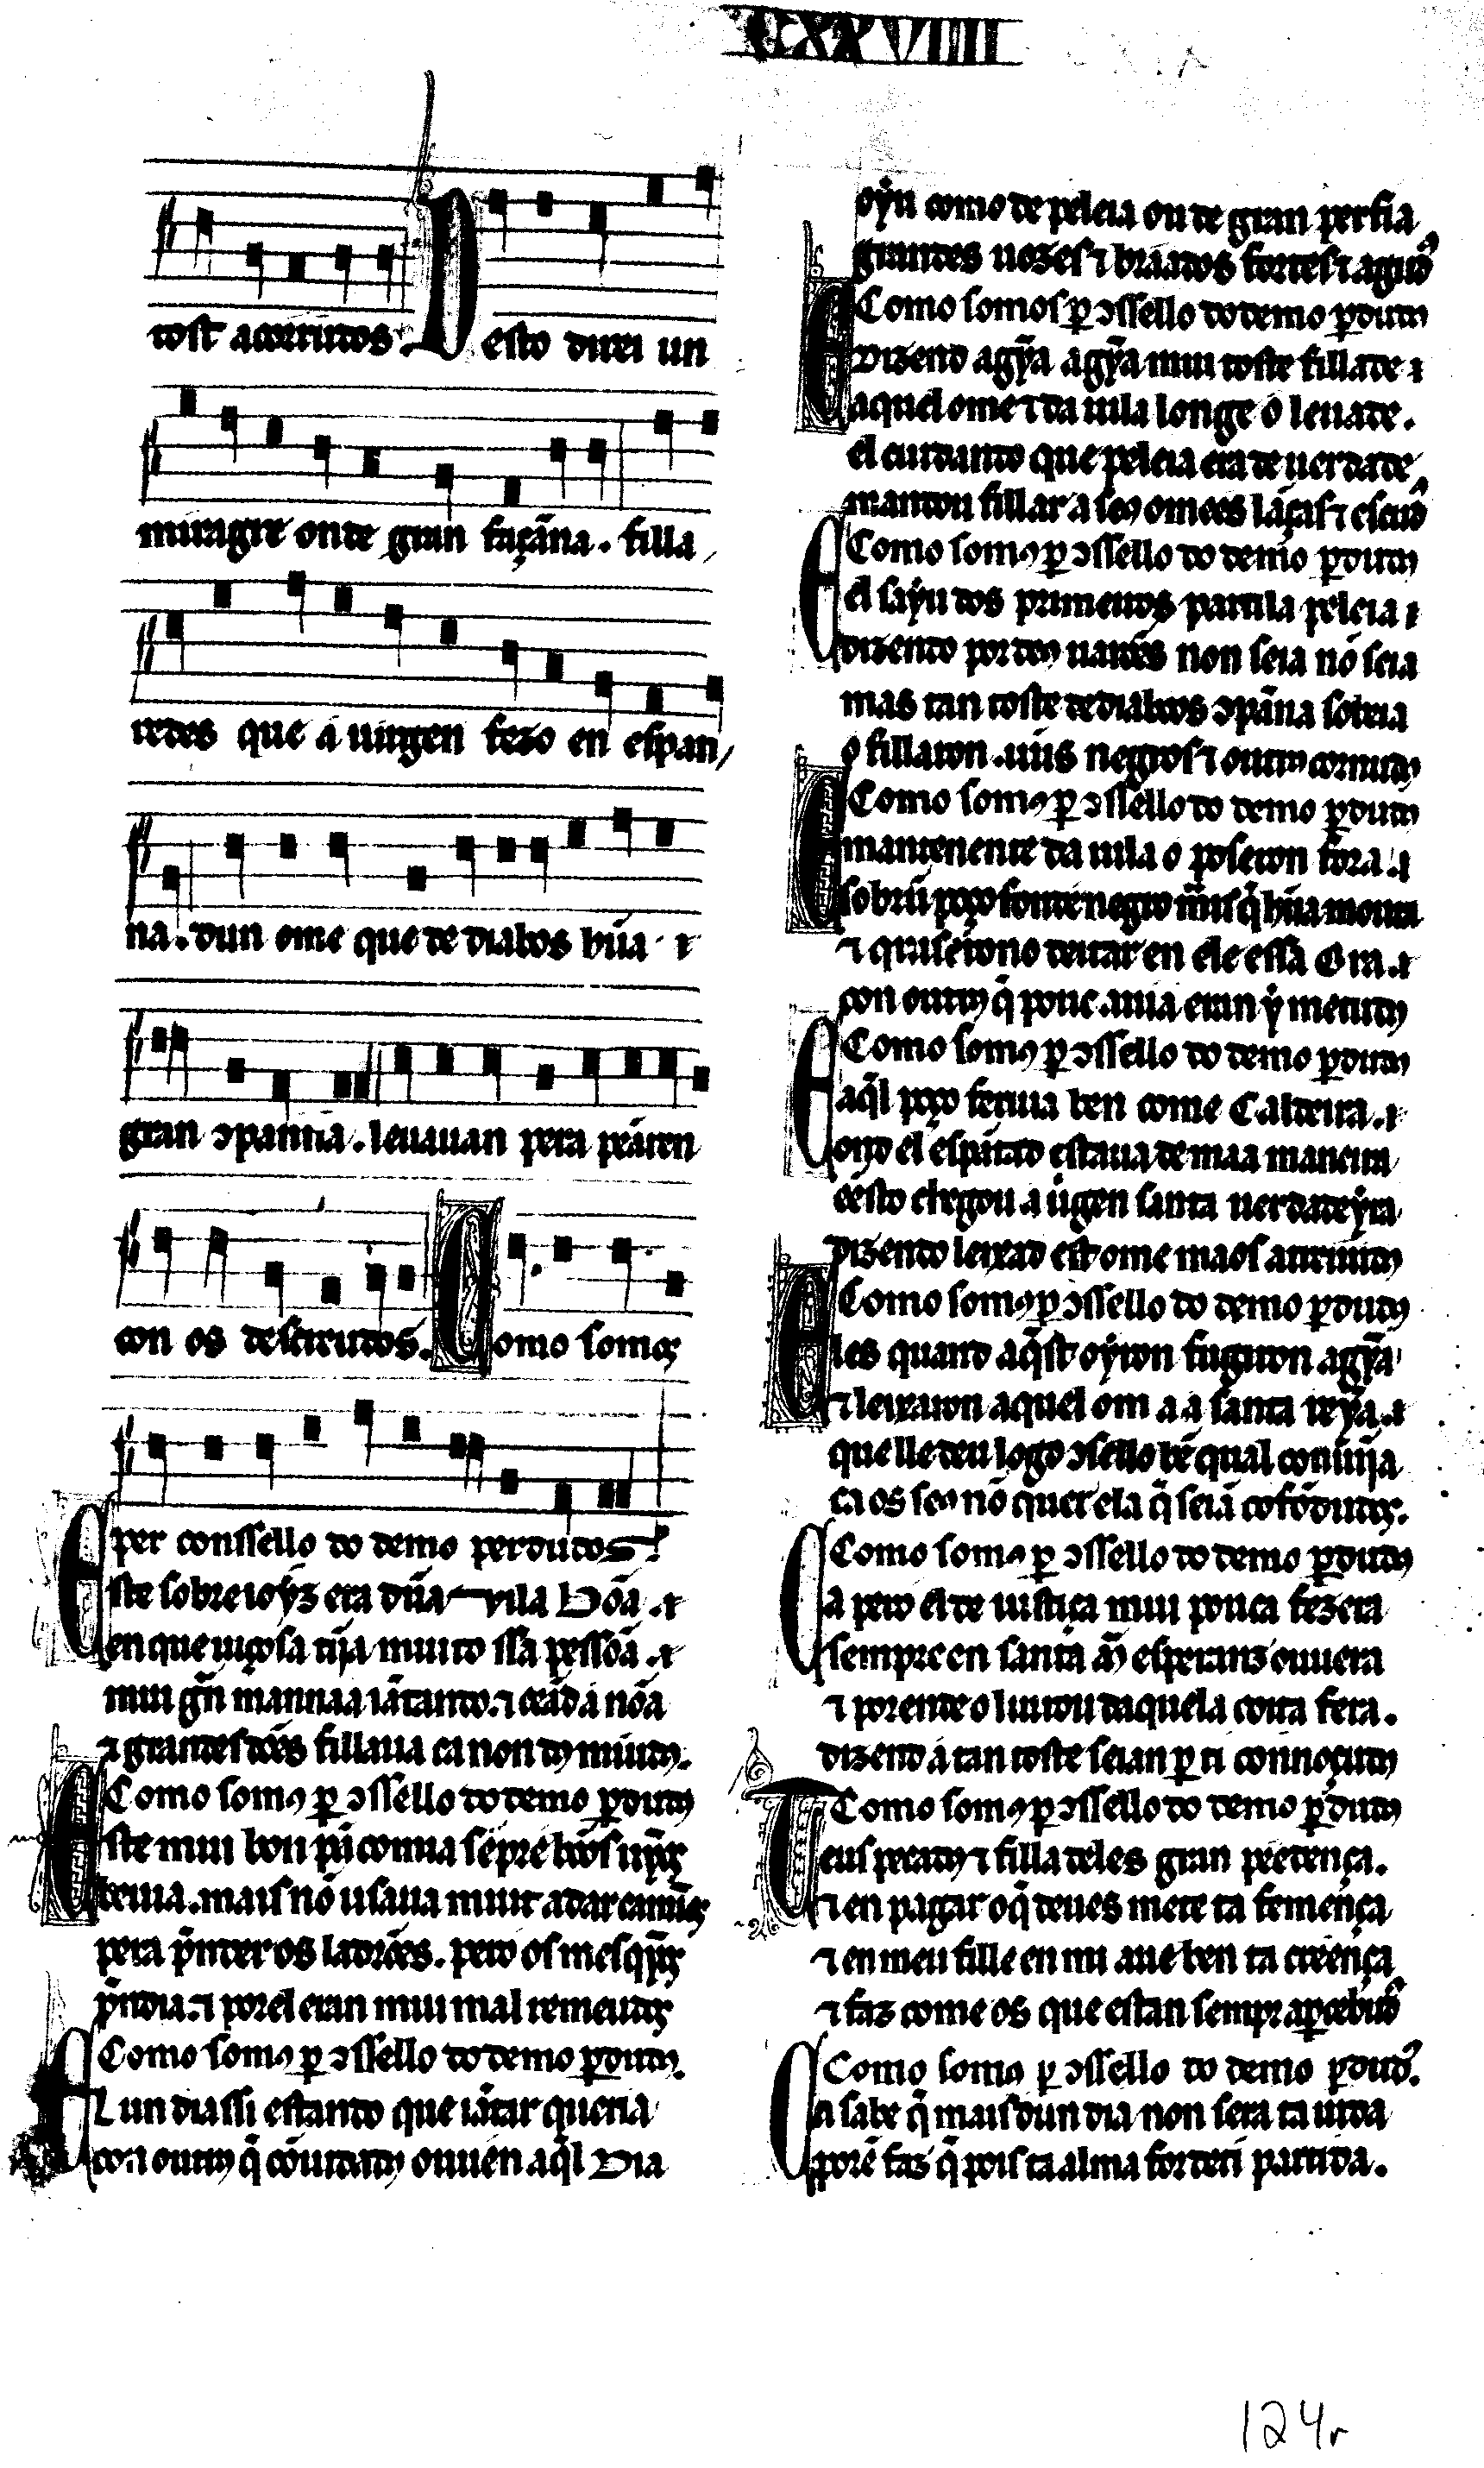 CXXVIIII
tost acorrudos. D esto direi un
miragre onde gran façãna. filla
redes que a uirgen fezo en espan
na. dun ome que de diabos hũa ⁊
gran ɔpannia. leuauan pera pẽaren
con os descreudos. Como somos
per conssello do demo perdudos.
Este sobreioyz era dũa uila bõa.⁊
en que uiçosa tĩja muito ssa pessõa.⁊
mui grã mannaa iãtando.⁊ cẽad a nõa
⁊ grandes dões fillaua ca non dos miudos.
Como somos ꝑ ɔssello do demo ꝑdudos
Este mui bon pan comia sẽpre e bõos uỹos
beuia. mais nõ usaua muit a dar camĩos
pera prender os ladrões. pero os mesqỹos
prendia.⁊ por el eran mui mal remeudos
Como somos ꝑ ɔssello do demo ꝑdudos.
El un dia ssi estando que iãtar queria
con outros q̃ conuidados ouue en aq̃l dia
oyu como de peleia ou de gran perfia
grandes uozes ⁊ braados fortes ⁊ agudos
Como somos ꝑ ɔssello do demo ꝑdudos
E dizend agỹa agỹa mui toste fillade ⁊
aquel ome ⁊ da uila longe o leuade.
el cuidando que peleia era de uerdade
mandou fillar a seus omees lãças ⁊ escudos
Como somos ꝑ ɔssello do demo ꝑdudos
E el sayu dos primeiros parti la peleia ⁊
dizendo por deus uarões non seia nõ seia
mas tan toste de diabos ɔpãna sobeia
o fillaron. uũs negros ⁊ outros cornudos
Como somos ꝑ ɔssello do demo ꝑdudos
E mantenente da uila o poseron fora.⁊
sobrũ poço fonte negro mais q̃ hũa moura
⁊ quiseronо deitar en ele essa ora.⁊
con outros q̃ pouc auia eran y metudos
Como somos ꝑ ɔssello do demo ꝑdudos
E aq̃l poço feruia ben come caldeira.⁊
ond el espantado estaua de maa maneira
e esto chegou a uirgen santa uerdadeyra
dizendo leixad est ome maos atreuudos
Como somos ꝑ ɔssello do demo ꝑdudos
Eles quand aq̃st oyron fugiron agỹa
⁊ leixaron aquel om a a santa reỹa.⁊
que lle deu logo ɔsello bẽ qual conuĩja
ca os seus nõ quer ela q̃ seiã cofõdudos.
Como somos ꝑ ɔssello do demo ꝑdudos
Ca pero el de iustiça mui pouca fezera
sempre en santa mª esperanz ouuera
⁊ porende o liurou daquela coita fera.
dizend a tan toste seian ꝑ ti connoçudos
Como somos ꝑ ɔssello do demo ꝑdudos
Teus pecados ⁊ filla deles gran pẽedença.
⁊ en pagar o q̃ deues mete ta femença
⁊ en meu fille en mi aue ben ta creença
⁊ faz come os que estan sempr aꝑcebudos
Como somos ꝑ ɔssello do demo ꝑdudos.
Ca sabe q̃ mais dun dia non sera ta uida
porẽ faz q̃ pois ta alma for de ti partida.
124r